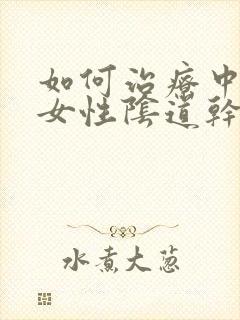 如何治療中
女性陰道幹
水煮大葱